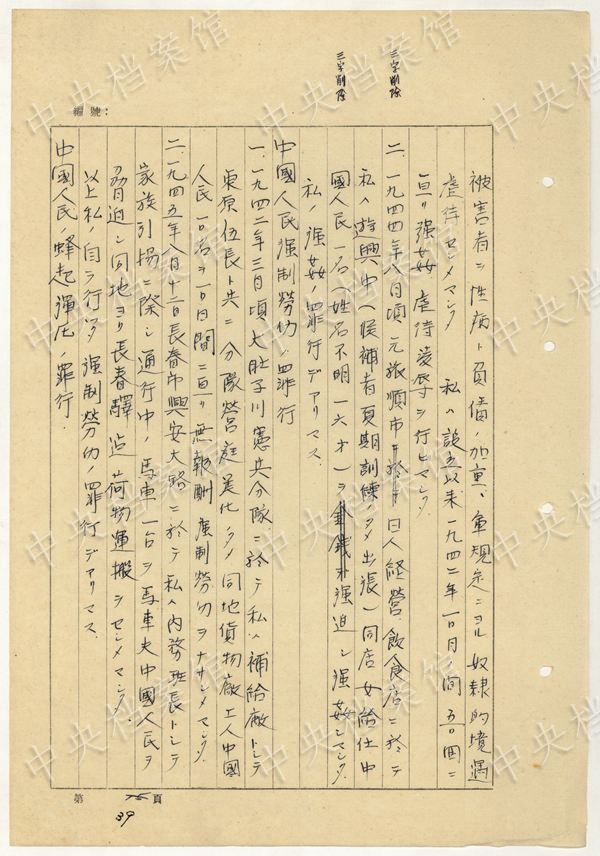 三字削除
三字削除
編號：
被害者ニ性病ト負債ノ加重、軍規定ニヨル奴隷的境遇
虐待セシメマシタ 私ハ設立以来一九四二年一〇月ノ間五〇回ニ
亘リ强姦虐待凌辱ヲ行ヒマシタ
二、一九四四年八月頃元旅順市ニ於テ日人経営、飲食店ニ於テ
私ハ遊興中（候補者夏期訓練ノタメ出張）同店女給仕中
國人民一名（姓名不明一六才）ヲ强迫シ强姦シマシタ
私ノ强姦ノ罪行デアリマス．
中國人民强制勞仂ノ罪行
一、一九四二年三月頃大肚子川憲兵分隊ニ於テ私ハ補給廠トシテ
東原伍長ト共ニ分隊營庭美化ノタメ同地貨物廠工人中國
人民一〇名ヲ一〇日間ニ亘リ無報酬强制勞仂ヲナサシメマシタ
二、一九四五年八月十二日長春市興安大路ニ於テ私ハ内務班長トシテ
家族引揚ニ際シ通行中ノ馬車一台ヲ馬車夫中國人民ヲ
脅迫シ同地ヨリ長春驛迄荷物運搬ヲセシメマシタ．
以上私ノ自ラ行ツタ强制勞仂ノ罪行デアリマス．
中國人民ノ蜂起彈圧ノ罪行．
第 頁
39
中央档案馆